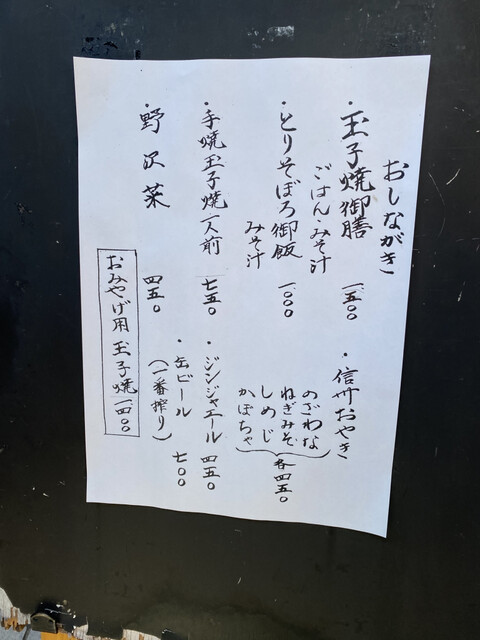 おしながき
・玉子焼御膳 一五〇〇
ごはん・みそ汁
・とりそぼろ御飯 一〇〇〇
みそ汁
・手焼玉子焼一人前 七五〇
・野沢菜 四五〇
・信州おやき
のざわな
ねぎみそ
しめじ
かぼちゃ
各四五〇
・ジンジャエール 四五〇
・缶ビール 七〇〇
(一番搾り)
おみやげ用玉子焼一四〇〇